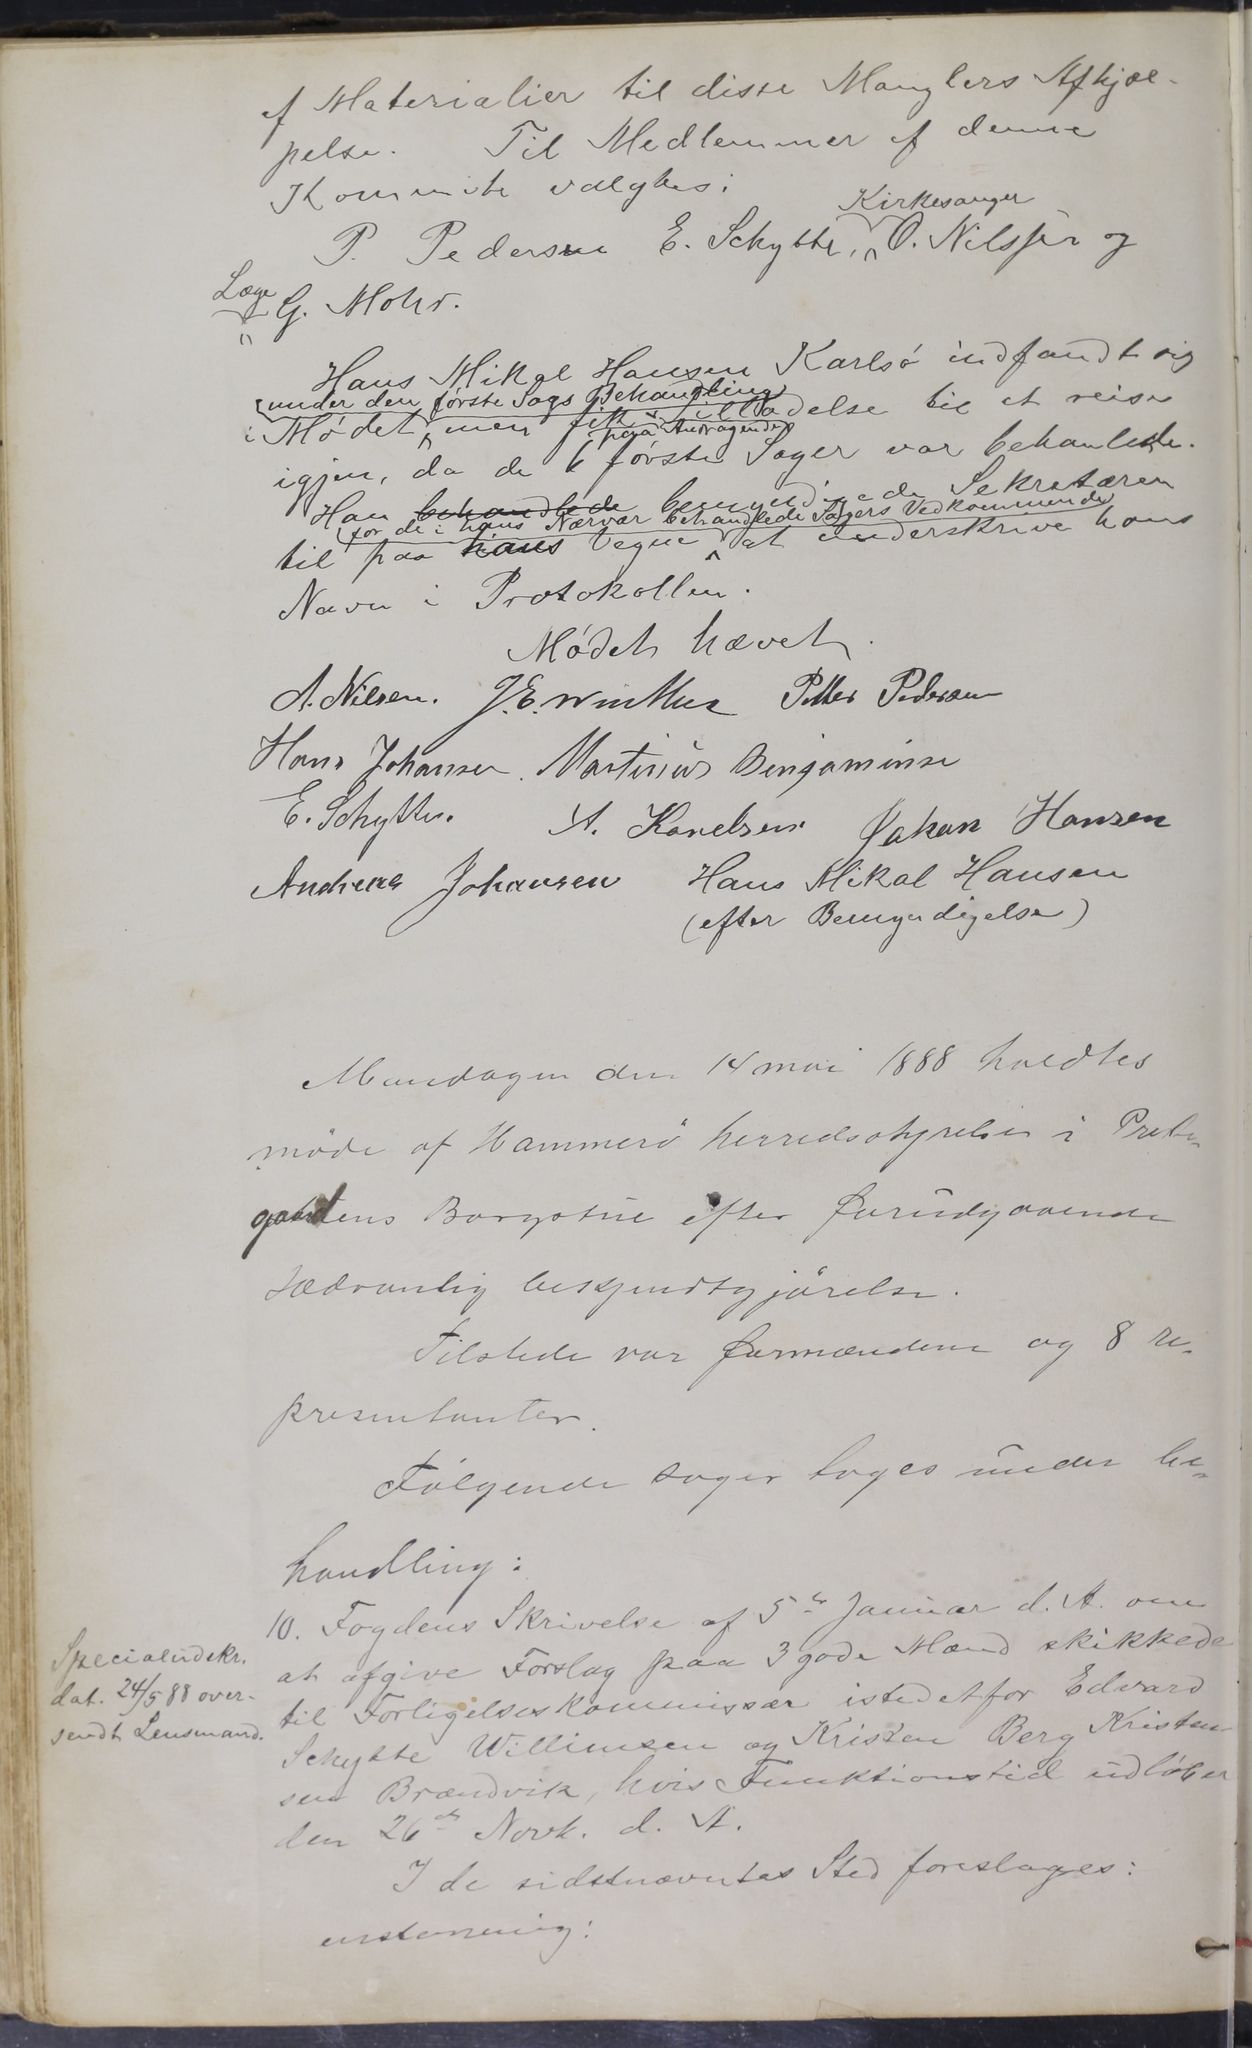 af Materialier til disse Manglers Afhjæl-
pelse. Til Medlemmer af denne
Kommite valgtes:
Kirkesanger
P. Pedersen E. Schytte, O. Nilssen og
Læge
G. Mohr.
Hans Mikal Hansen Karlsö indfandt sig
under den første Sags Behandling
i Mødet, men fik Tilladelse til at reise
paa Andragende
igjen, da de 6 første Sager var behandlede.
Han behandlede bemyndigede Sekretæren
for de i hans Nærvær behandlede Sagers Vedkommende
til paa hans Vegne at underskrive hans
Navn i Protokollen.
Mødet hævet.
A. Nilsen. J. E. Winther Petter Pedersen
Hans Johansen. Martinus Benjaminse
E. Schytte. A. Karelsen Håkan Hansen
Andreas Johansen Hans Mikal Hansen
(efter Bemyndigelse)
Mandagen den 14 mai 1888 holdtes
møde af Hammerö herredsstyrelse i Preste-
gaardens Borgstue efter forudgaaende
sædvanlig bekjendtgjörelse.
Tilstede var formændene og 8 re-
presentanter.
Følgende sager toges under be-
handling:
10. Fogdens Skrivelse af 5te Januar d. A. om
at afgive Forslag paa 3 gode Mænd skikkede
til Forligelseskommissær istedetfor Edvard
Schytte Willumsen og Kristen Berg Kristen-
sen Brændvik, hvis Funktionstid udløber
den 26de Novb. d. A.
I de sidstnævntes Sted foreslages:
enstemmig:
Specialudskr.
dat. 24/5 88 over-
sendt Lensmand.